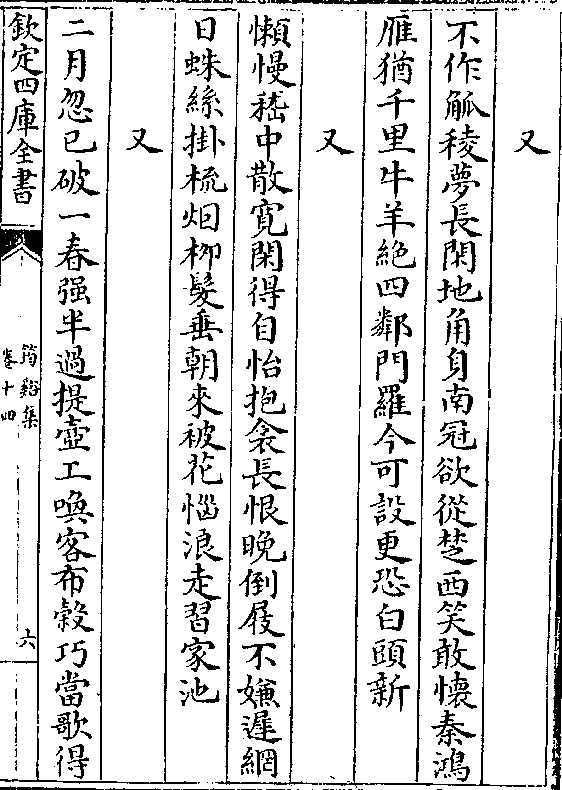 又
不作觚稜夢長閑地角身南冠欲從楚西笑敢懷秦鴻
雁猶千里牛羊絶四鄰門羅今可設更恐白頭新
又
懶慢嵇中散寛閑得自怡抱衾長恨晚倒屐不嫌遲網
日蛛絲掛梳烟栁髮垂朝來被花惱浪走習家池
又
二月忽已破一春强半過提壺工喚客布榖巧當歌得
欽定四庫全書
筠谿集
卷十四
六